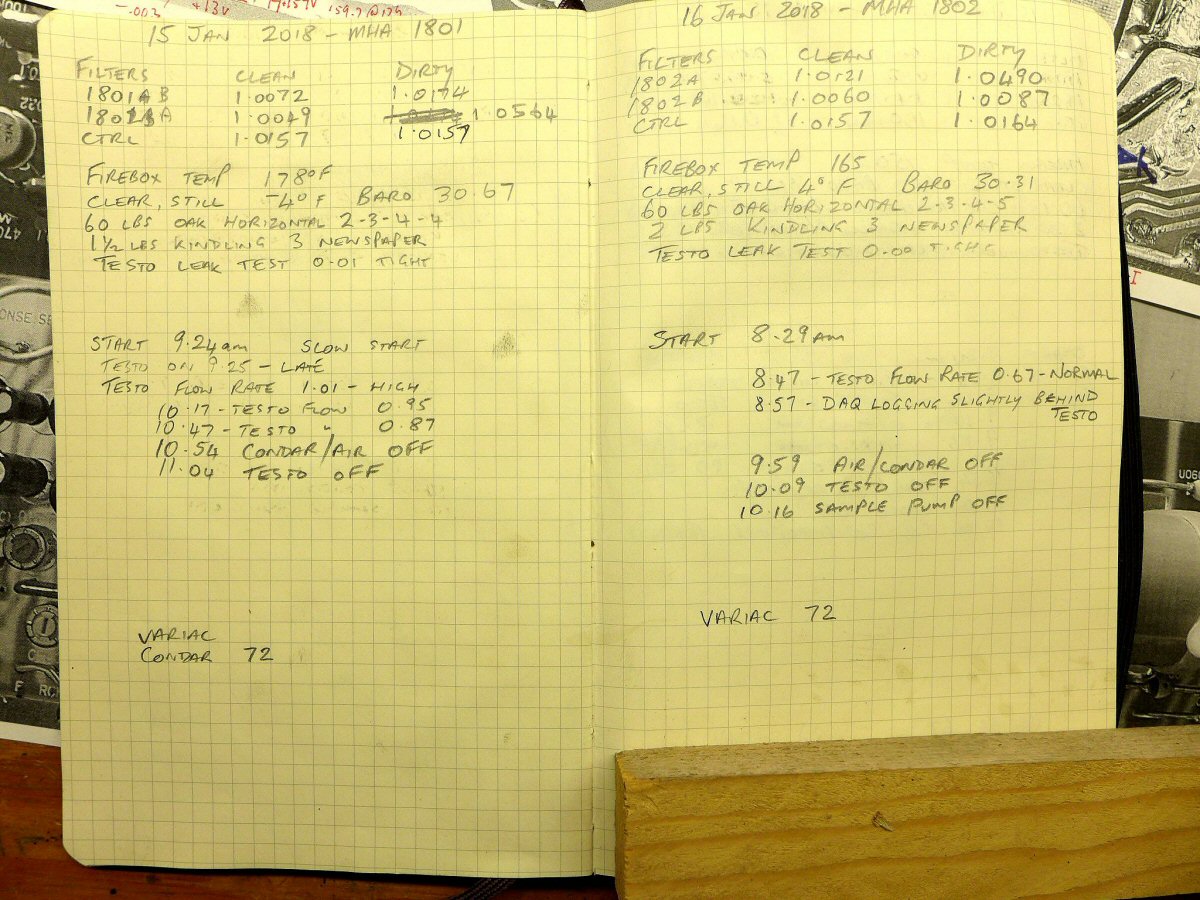 -.003 +13V
15 JAN 2018 - MHA 1801
FILTERS CLEAN DIRTY
1801AB 1.0072 1.0174
1.0049 1.0564
CTRL 1.0157 1.0157
FIREBOX TEMP 178°F
CLEAR, STILL -4°F BARO 30.67
60 LBS OAK HORIZONTAL 2-3-4-4
1½ LBS KINDLING 3 NEWSPAPER
TESTO LEAK TEST 0.01 TIGHT
START 9.24am SLOW START
TESTO ON 9.25 - LATE
TESTO FLOW RATE 1.01 - HIGH
10.17 - TESTO FLOW 0.95
10.47 - TESTO " 0.87
10.54 CONDAR/AIR OFF
11.04 TESTO OFF
VARIAC
CONDAR 72
16 JAN 2018 - MHA 1802
FILTERS CLEAN DIRTY
1802A 1.0121 1.0490
1802B 1.0060 1.0087
CTRL 1.0157 1.0164
FIREBOX TEMP 165
CLEAR, STILL 4°F BARO 30.31
60 LBS OAK HORIZONTAL 2-3-4-5
2 LBS KINDLING 3 NEWSPAPER
TESTO LEAK TEST 0.00 TIGHT
START 8.29am
8.47 - TESTO FLOW RATE 0.67 - NORMAL
8.57 - DAQ LOGGING SLIGHTLY BEHIND
TESTO
9.59 AIR/CONDAR OFF
10.09 TESTO OFF
10.16 SAMPLE PUMP OFF
VARIAC 72